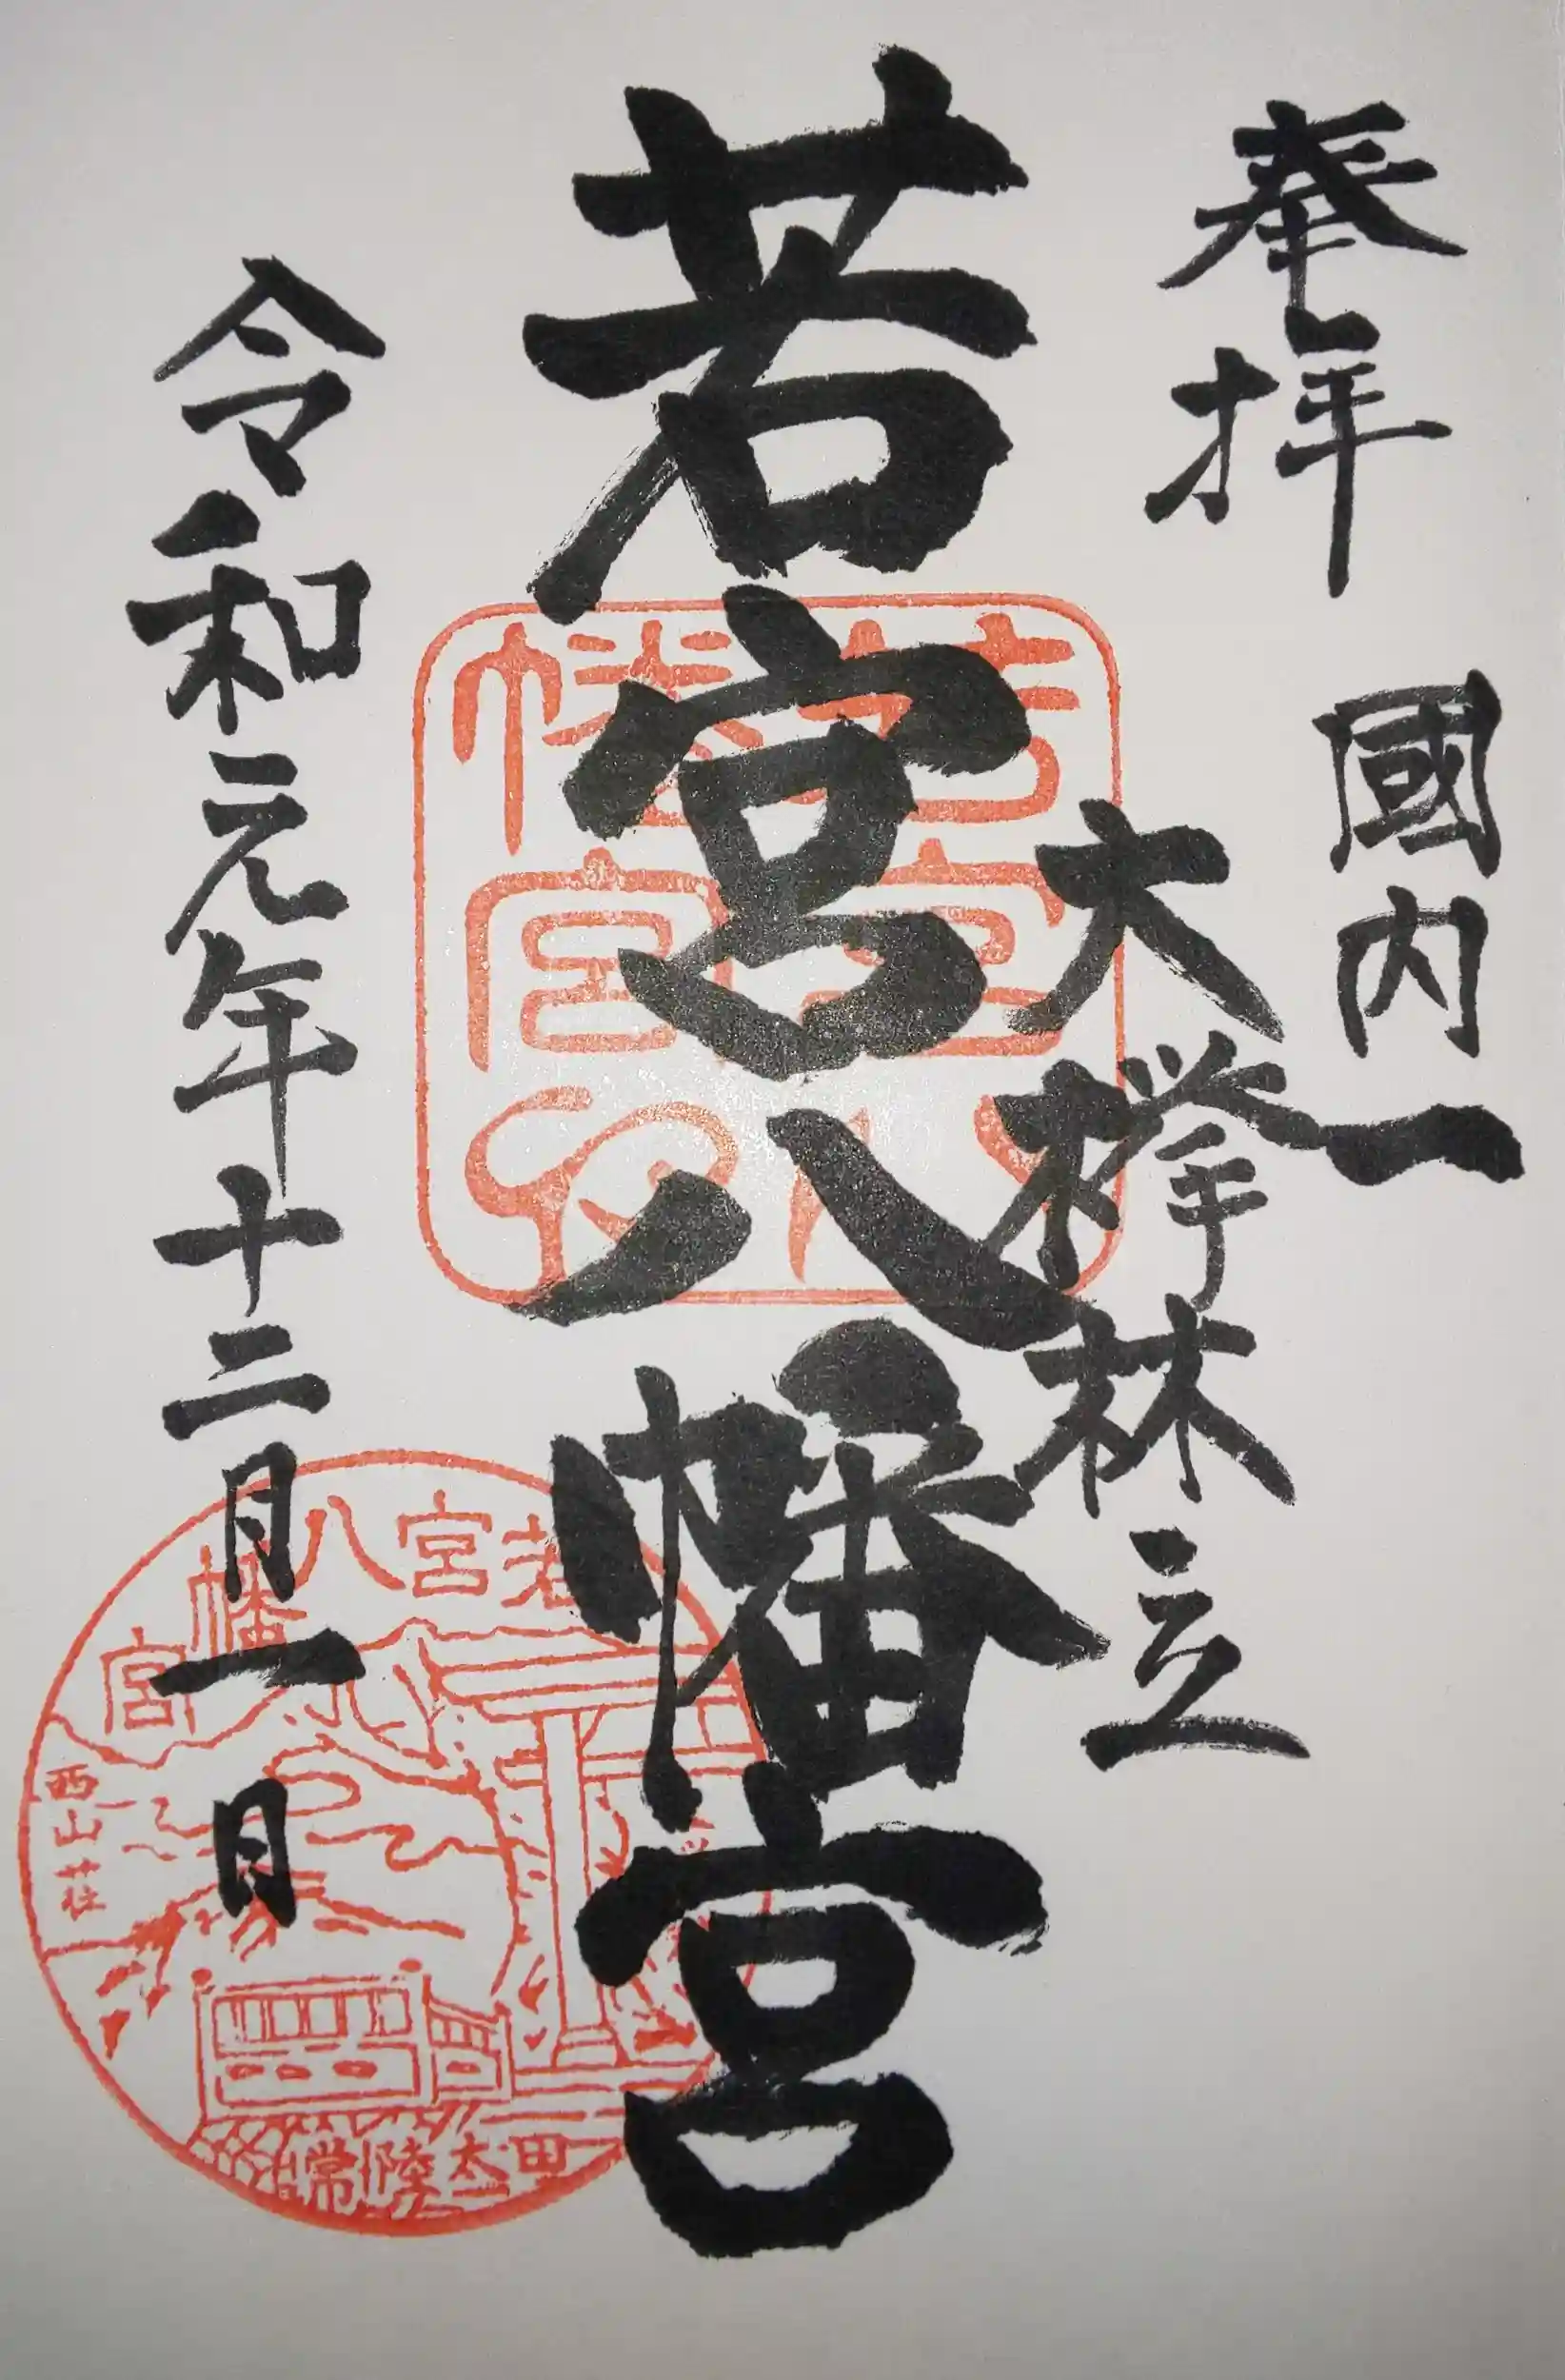 奉拝
國内一
大欅林立
若宮八幡宮
令和元年十二月一日
若宮八幡宮印
若宮八幡宮
西山荘
常陸太田